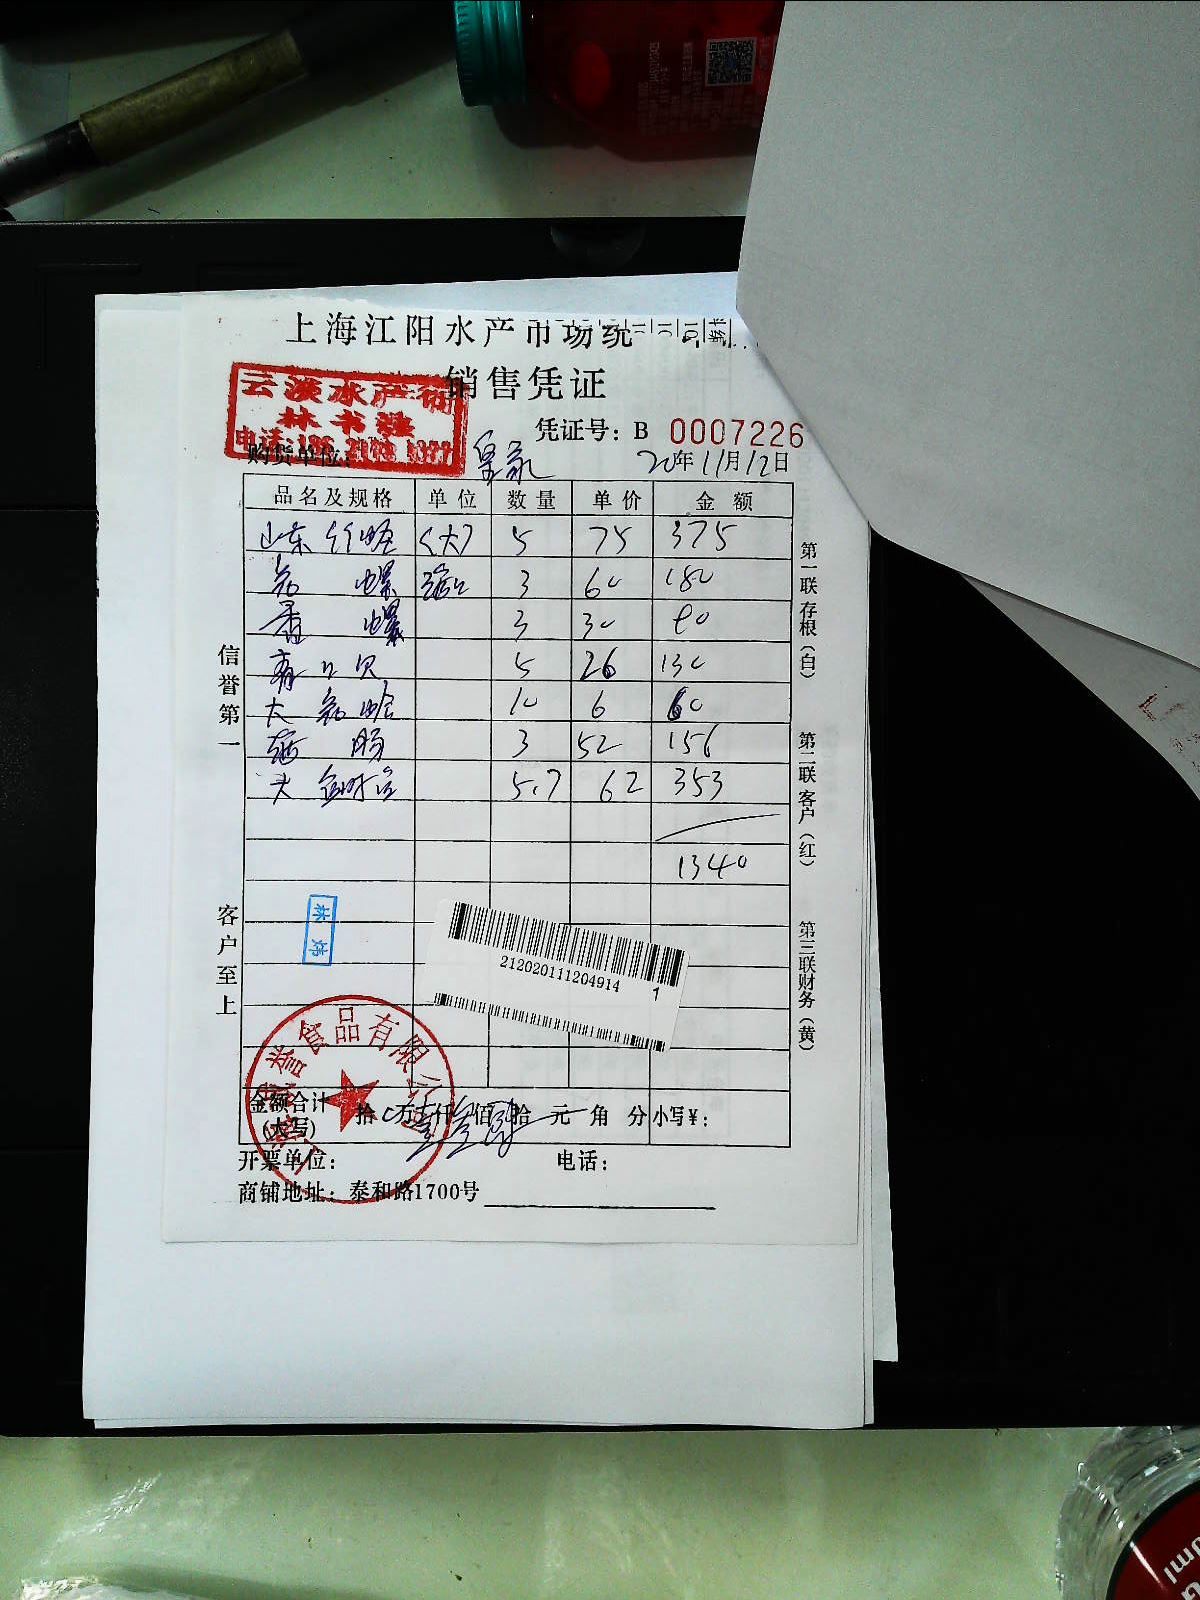 上海江阳水产市场统
销售凭证
云淡水产
林书强
电话:186
凭证号: B 0007226
购货单位: 皇家
20年11月12日
品名及规格 单位 数量 单价 金额
山东竹蛏 <大> 5 75 375
螺 3 60 180
香螺 3 30 90
青口贝 5 26 130
大 蛤 10 6 60
肠 3 52 156
大 5.7 62 353
1340
林
212020111204914 1
食品有限公
金额合计
(大写) 拾 万 仟 佰 拾 元 角 分 小写¥:
开票单位: 电话:
商铺地址: 泰和路1700号
信誉第一
客户至上
第一联存根(白)
第二联客户(红)
第三联财务(黄)